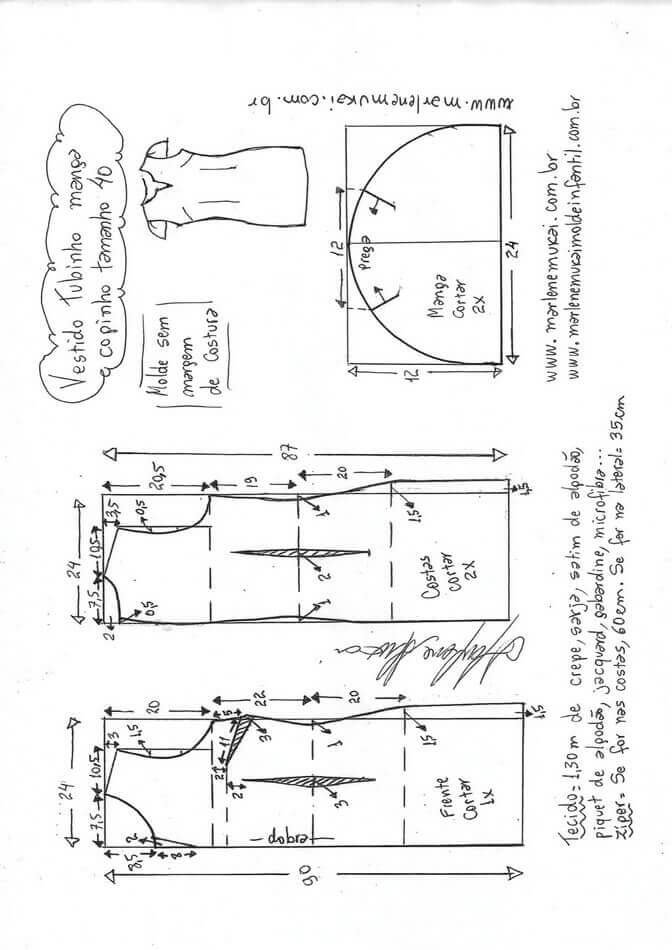 Vestido Tubinho manga
copinho tamanho 40
Molde sem
margem
de Costura
www.marlenemukai.com.br
12
Prega
Manga
Cortar
2x
24
12
www.marlenemukai.com.br
www.marlenemukaimoldeinfantil.com.br
87
20,5
19
20
3,5
0,5
24
10,5
7,5
2
0,5
1
1
2
1,5
1,5
Costas
cortar
2x
20
22
20
3
1,5
5
11
3
2
2
24
10,5
7,5
1
3
1,5
1,5
2
8,5
8
dobra
Frente
Cortar
1x
90
Tecido = 1,30m de crepe, sarja, satim de algodão,
piquet de algodão, jacquard, gabardine, microfibra...
Zíper = Se for nas costas, 60cm. Se for na lateral = 35cm